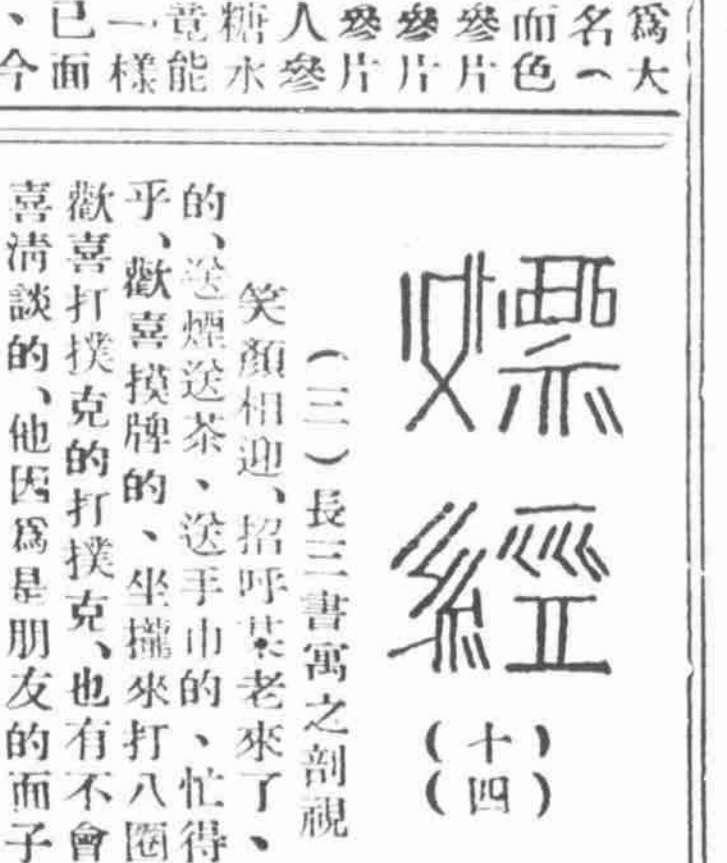 爲大
名（
而色
參片
參片
參片
人參
糖水
竟能
一樣
已面
、今
嫖經
（十四）
（三）長三書寓之剖視
笑顏相迎、招呼某老來了、
的、送煙送茶、送手巾的、忙得
乎、歡喜摸牌的、坐攏來打八圈
歡喜打撲克的打撲克、也有不會
喜清談的、他因爲是朋友的面子